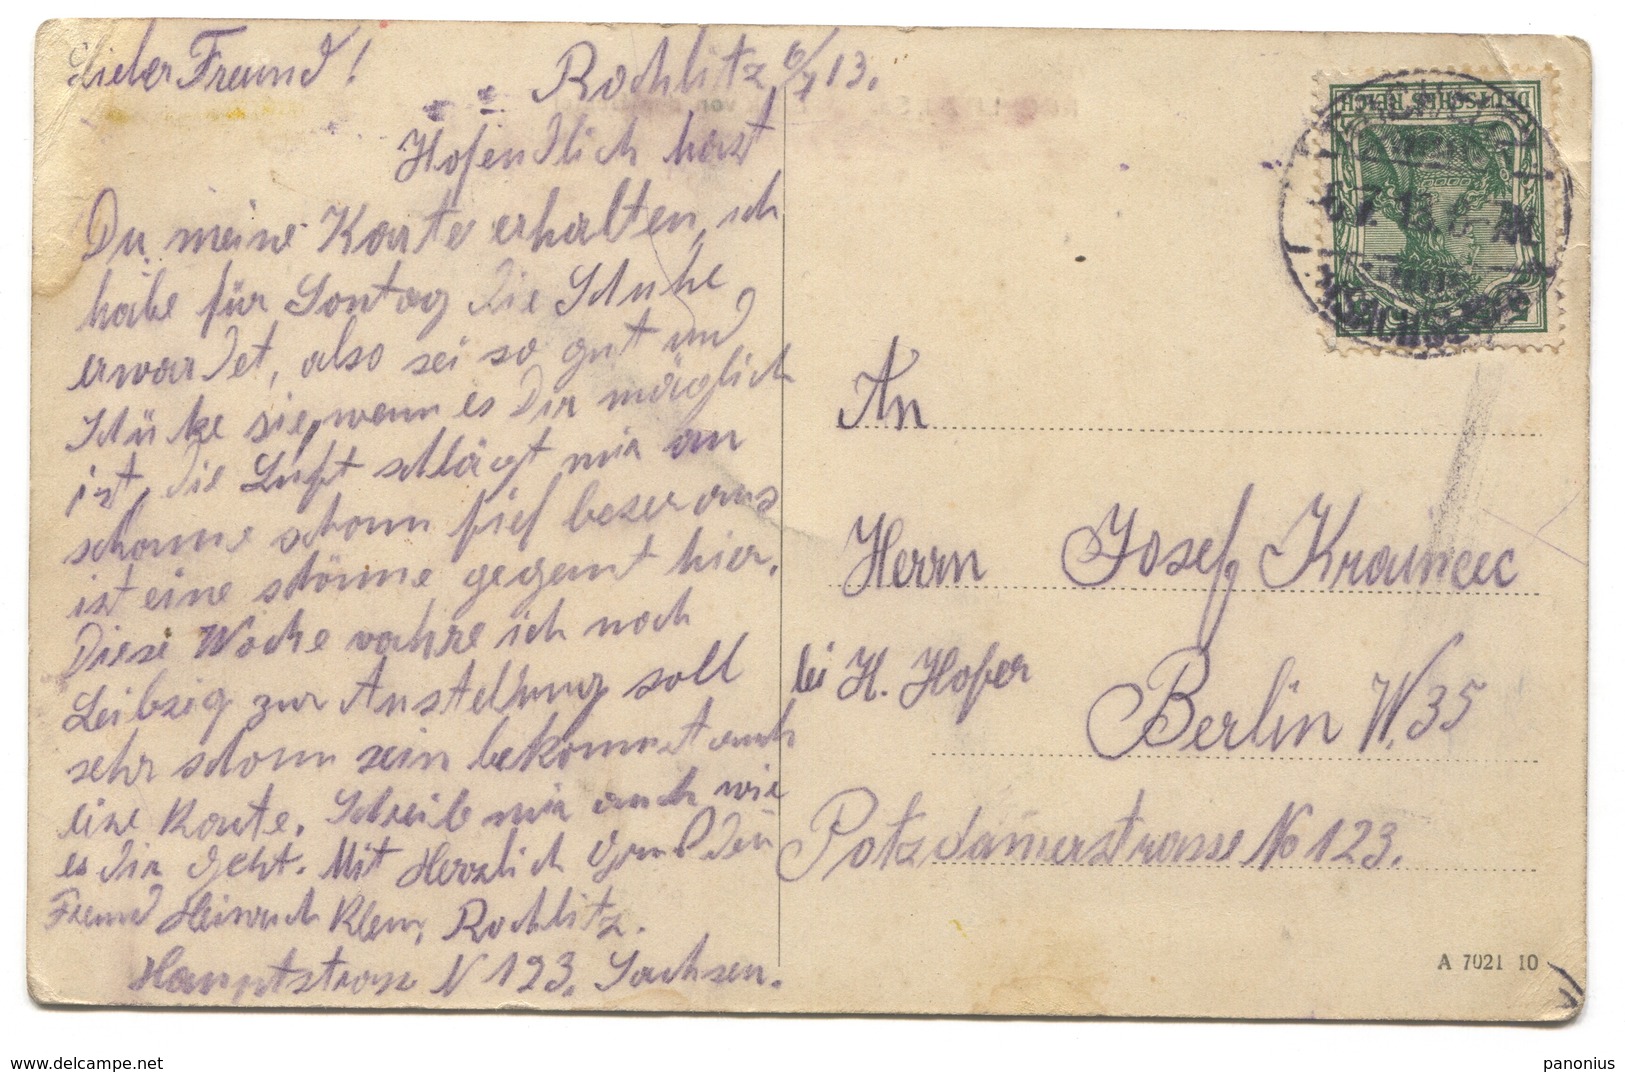 Lieber Freund!
Rochlitz, 6/7 13.
Hofendlich hast
Du meine Karte erhalten, ich
habe für Sontag die Schuhe
erwardet, also sei so gut und
schücke sie, wenn es Dir möglich
ist, die Luft schlägt mir an
schonne schonn fiel beser aus
ist eine schönne gegent hier.
Diese Woche vahre ich noch
Leibzig zur Austellung soll
sehr schonn sein bekommst auch
eine Karte. Schreib mir auch wie
es dir geht. Mit Herzlich Gruß Dein
Freund Heinrich Klem, Rochlitz.
Hauptstrase N 123. Sachsen.
DEUTSCHES REICH
6.7.13.
An
Herrn Josef Kraincec
bei H. Hofer
Berlin W. 35
Potzdamerstrasse No 123.
A 7021 10
www.delcampe.net
panonius